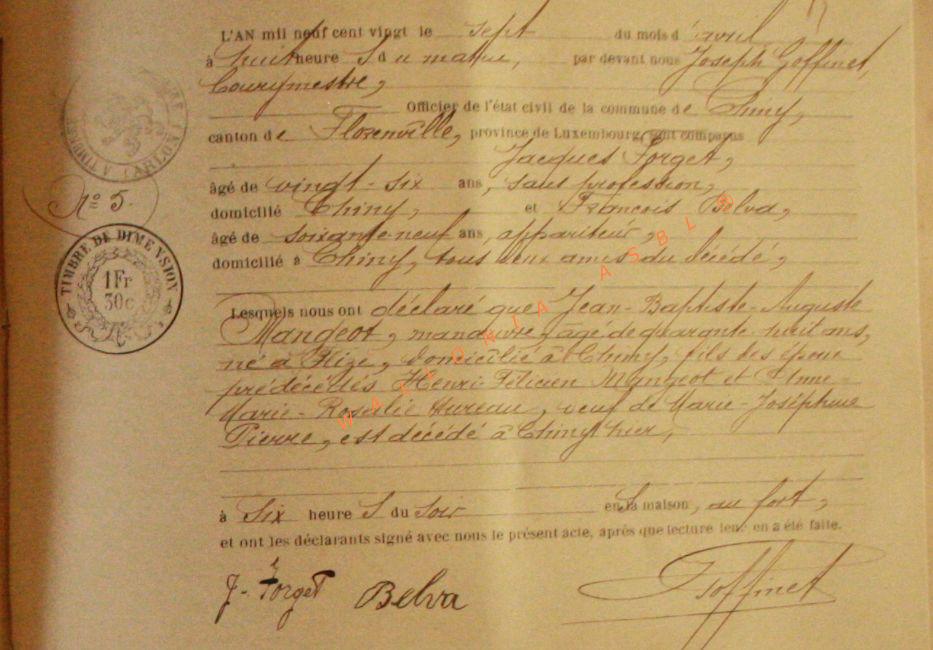 L'AN mil neuf cent vingt le sept du mois d'avril
à huit heure s du matin, par devant nous Joseph Goffinet,
Bourgmestre,
Officier de l'état civil de la commune de Chiny,
canton de Florenville, province de Luxembourg, sont comparus
Jacques Forget,
âgé de vingt-six ans, sans profession,
N° 5.
domicilié Chiny, et François Belva,
âgé de soixante neuf ans, appariteur,
domicilié à Chiny, tous deux amis du décédé,
TIMBRE DE DIMENSION
1 Fr
30c
Lesquels nous ont déclaré que Jean-Baptiste-Auguste
Mangeot, manœuvre, âgé de quarante huit ans,
né à domicilié à Chiny, fils des époux
prédécédés Henri-Félicien Mangeot et Anne-
Marie-Rosalie Hureau, veuf de Marie-Joséphine
Pierre, est décédé à Chiny hier,
à six heure s du soir en sa maison, au fort,
et ont les déclarants signé avec nous le présent acte, après que lecture leur en a été faite.
J. Forget Belva Goffinet
WALLONIA ASBL ©